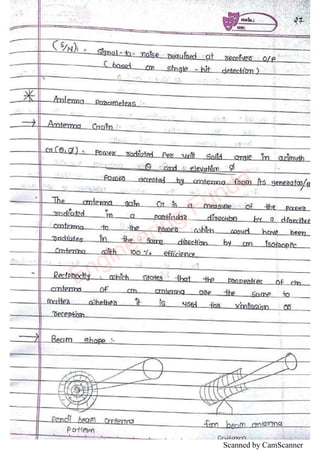 27
(S/N)₁ = signal-to-noise required at receiver o/p
( based on single-hit detection )
* Antenna Parameters :-
→ Antenna Gain :-
G(θ,ϕ) = Power radiated per unit solid angle in azimuth
θ and elevation ϕ
Power accepted by antenna from its generator/
- The antenna gain G is a measure of the power
radiated in a particular direction by a directive
antenna to the power which would have been
radiated in the same direction by an isotropic
antenna with 100 % efficiency.
- Reciprocity : which states that the properties of an
antenna of an antenna are the same to
matter whether it is used for xmission or
reception.
→ Beam shape :-
pencil beam antenna
pattern
fan beam antenna
Scanned by CamScanner